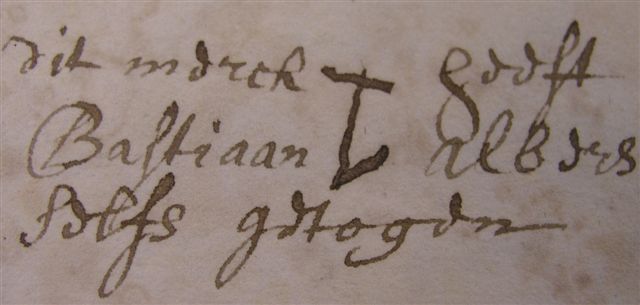 dit merck heeft
Bastiaan albers
selfs getogen